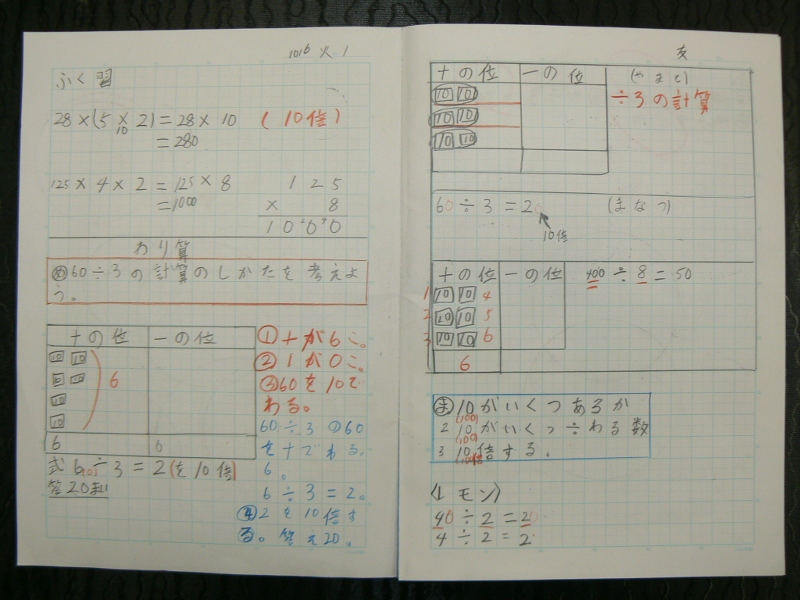 1016 火 1
ふく習
28×(5×2)=28×10 (10倍)
10
=280
125×4×2=125×8
=1000
125
× 8
1000
わり算
め 60÷3の計算のしかたを考えよ
う。
十の位 一の位
10 10
10 10
10
10
6
6 0
式 60÷3=2(を10倍)
答20まい
①十が6こ。
②1が0こ。
③60を10で
わる。
60÷3の60
を十でわる。
6。
6÷3=2。
④2を10倍す
る。答え20。
友
十の位 一の位
10 10
10 10
10 10
(やまと)
÷3の計算
60÷3=20 (まなつ)
10倍
十の位 一の位
1 10 10 4
2 10 10 5
3 10 10 6
6
400÷8=50
ま 10がいくつあるか
(100)
2 10がいくつ÷わる数
(100)
3 10倍する。
(100倍)
〈レモン〉
40÷2=20
4÷2=2